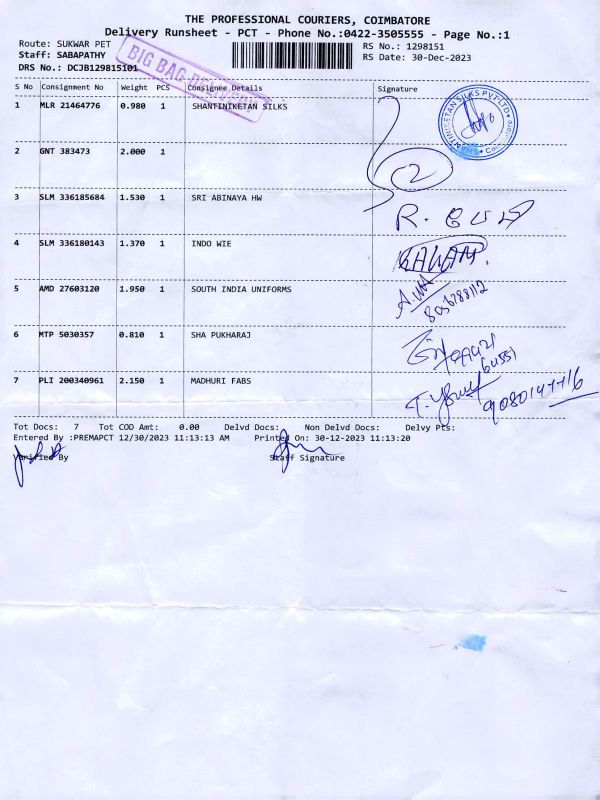 THE PROFESSIONAL COURIERS, COIMBATORE
Delivery Runsheet - PCT - Phone No.:0422-3505555 - Page No.:1
Route: SUKWAR PET
RS No.: 1298151
Staff: SABAPATHY
RS Date: 30-Dec-2023
DRS No.: DCJB129815101
BIG BAG
S No Consignment No Weight PCS Consignee Details Signature
1 MLR 21464776 0.980 1 SHANTINIKETAN SILKS
2 GNT 383473 2.000 1
2
3 SLM 336185684 1.530 1 SRI ABINAYA HW
R.
4 SLM 336180143 1.370 1 INDO WIE
5 AMD 27603120 1.950 1 SOUTH INDIA UNIFORMS
6 MTP 5030357 0.810 1 SHA PUKHARAJ
7 PLI 200340961 2.150 1 MADHURI FABS
Tot Docs: 7 Tot COD Amt: 0.00 Delvd Docs: Non Delvd Docs: Delvy Pts:
Entered By :PREMAPCT 12/30/2023 11:13:13 AM Printed On: 30-12-2023 11:13:20
Verified By Staff Signature